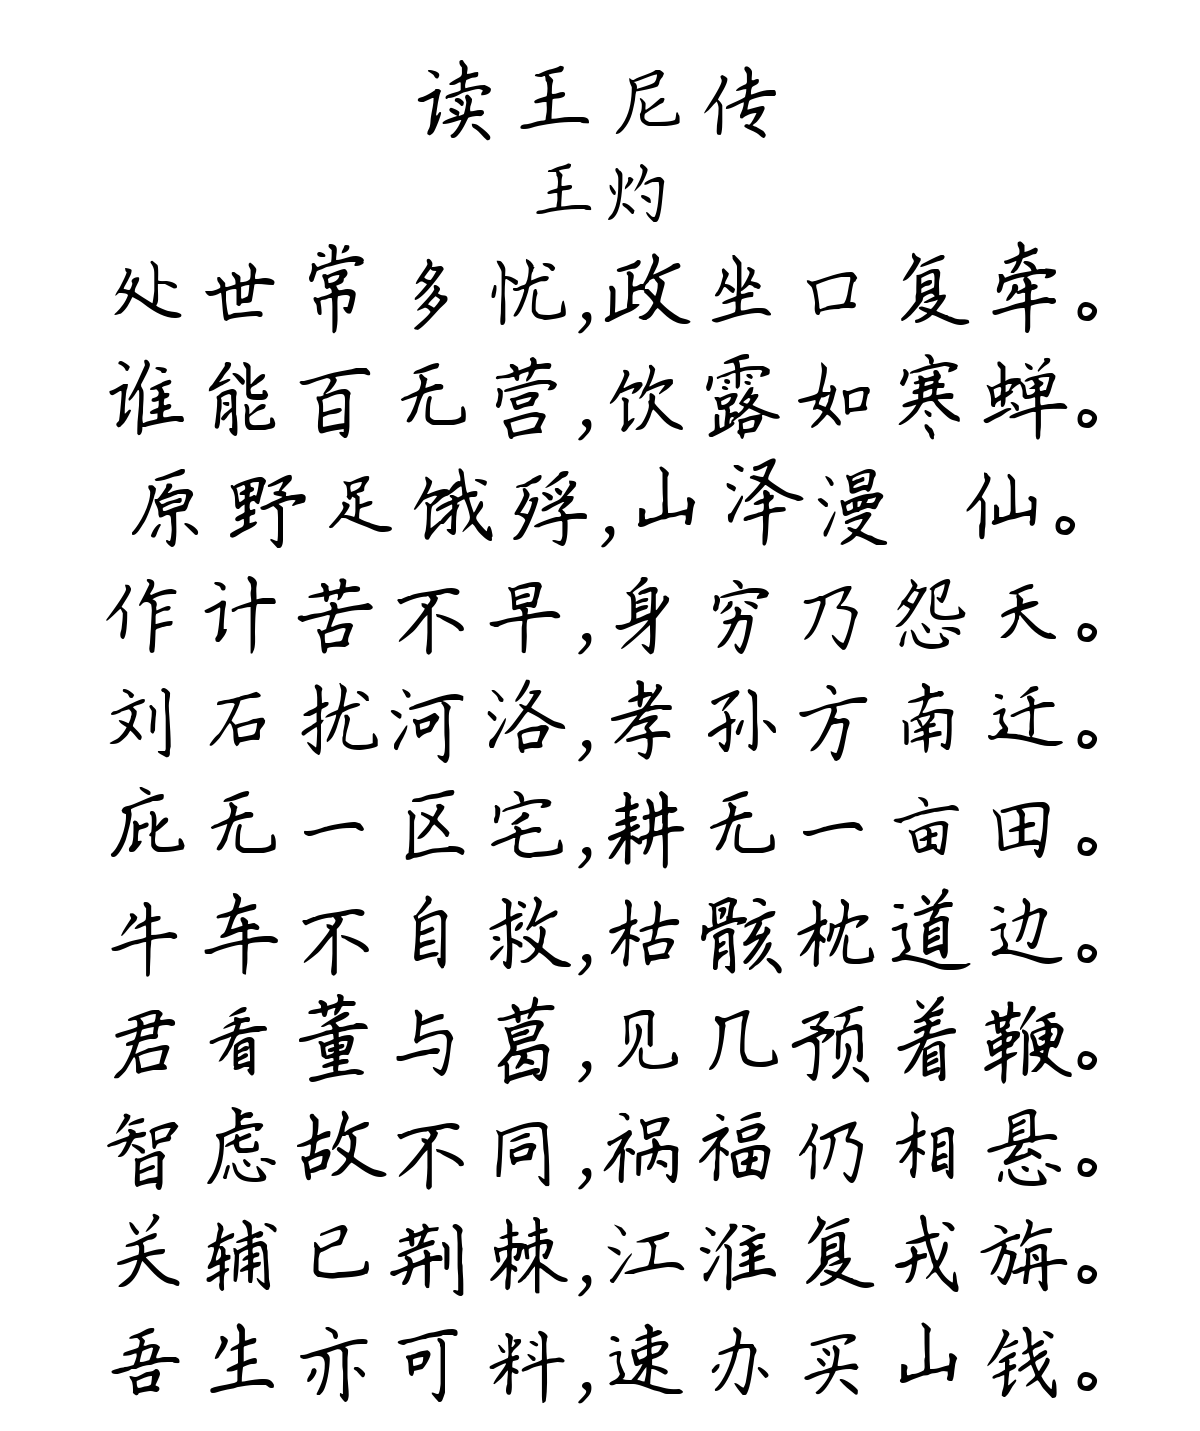 读王尼传
王灼
处世常多忧,政坐口复牵。
谁能百无营,饮露如寒蝉。
原野足饿殍,山泽漫 仙。
作计苦不早,身穷乃怨天。
刘石扰河洛,孝孙方南迁。
庇无一区宅,耕无一亩田。
牛车不自救,枯骸枕道边。
君看董与葛,见几预着鞭。
智虑故不同,祸福仍相悬。
关辅已荆棘,江淮复戎旃。
吾生亦可料,速办买山钱。